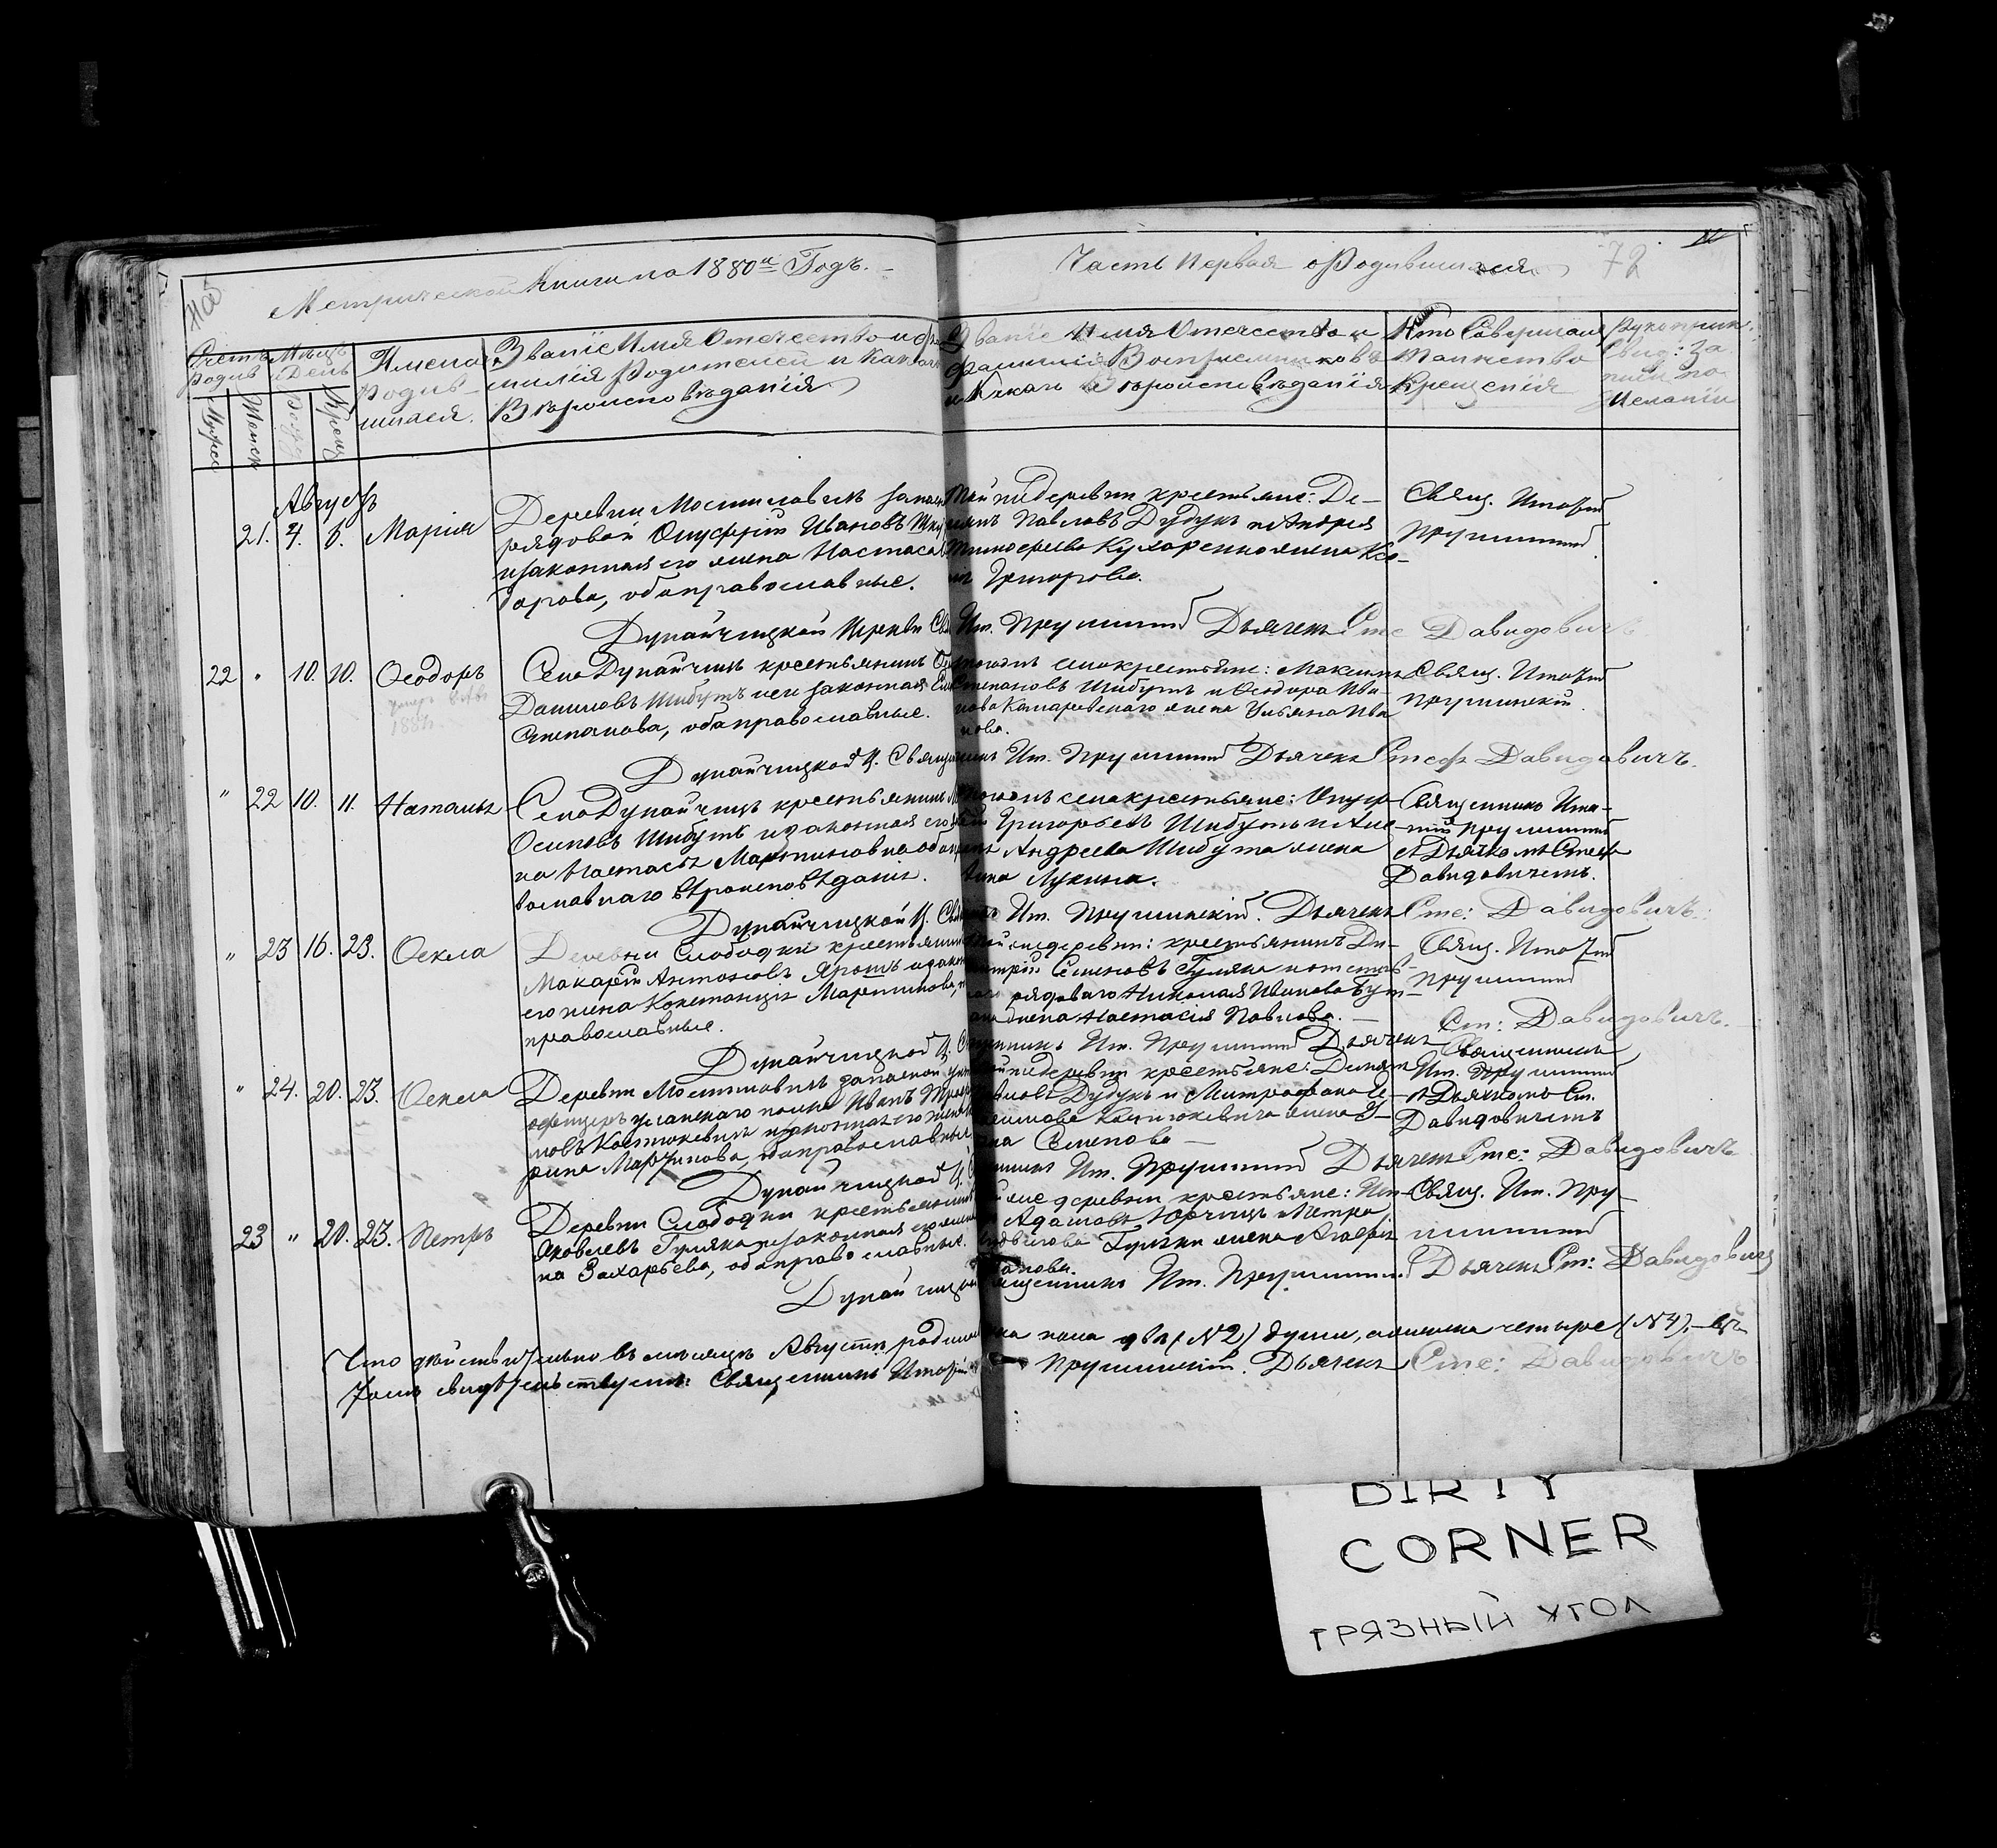 Метрической Книги на 1880й Годъ.
Часть Первая о Родившихся 72
Счетъ Родив
Мѣсцъ и День
Имена Родив-
шихся.
Званіе Имя Отечество и фа
милія Родителей и Какого
Вѣроисповѣданія
Званіе Имя Отечество и
Фамилія Воспріемниковъ
и Какого Вѣроисповѣданія
Кто Совершалъ
Таинство
Крещенія
Рукоприк:
Свид: За
писи по
Желанію
Августъ
21. 4. 5. Марія
Деревни Мостиловичъ запас
рядовой Онуфрій Ивановъ
и законная его жена Настасія
рова, оба православные.
той же деревни крестьяне: Де-
Павловъ Дудукъ и Андрея
Тимофеева Кухаренко жена Ксе-
нія Григорова.
Свящ. Игнатій
Прушинскій.
Дунайчицкой Церкви Св Иг. Прушинскій Дьячекъ Сте Давидовичъ
22 " 10. 10. Ѳеодоръ
1881
Села Дунайчицъ крестьянинъ
Даниловъ Шибутъ и его законная
Степанова, оба православные.
тогожъ села крестьяне: Максимъ
Степановъ Шибутъ и Ѳеодора Ива-
нова Комаровскаго жена Ульяна Ива
нова.
Свящ. Игнатій
Прушинскій.
Дунайчицкой Ц. Священникъ Иг. Прушинскій Дьячекъ Стеф Давидовичъ.
" 22 10. 11. Наталія
Села Дунайчицъ крестьянинъ
Осиповъ Шибутъ и законная его
на Настасія Мартинова оба пра
вославнаго вѣроисповѣданія.
тогожъ села крестьяне: Онуф-
рій Григорьевъ Шибутъ и Але
Андреева Шибута жена
Анна Лукина.
Священникъ Игна-
тій Прушинскій
съ Дьячкомъ Стеф
Давидовичемъ.
Дунайчицкой Ц. Священникъ Иг. Прушинскій. Дьячекъ Сте: Давидовичъ.
" 23 16. 23. Ѳекла
Деревни Слободки крестьянинъ
Макарій Антоновъ Ярошъ и закон
его жена Констанція Мартинова,
православные.
той же деревни: крестьянинъ Ди-
митрій Семеновъ Гуляка и отстав-
наго рядоваго Николая Иванова
жена Настасія Павлова.
Свящ. Игнатій
Прушинскій
Дунайчицкой Ц. Священникъ Иг. Прушинскій Дьячекъ Ст: Давидовичъ.
" 24. 20. 23. Ѳекла
Деревни Мостиловичъ запасной унт
офицеръ уланскаго полка Иванъ
мовъ Костюкевичъ и законная его жена
рина Мартинова, оба православные.
той же деревни крестьяне: Демьянъ
Павловъ Дудукъ и Митрофана
Костюкевича жена
Семенова
Священникъ
Иг. Прушинскій
съ Дьячкомъ Ст.
Давидовичемъ
Дунайчицкой Ц. Священникъ Иг. Прушинскій Дьячекъ Сте: Давидовичъ
23 " 20. 23. Петръ
Деревни Слободки крестьянинъ
Яковлевъ Гуляка и законная его жена
на Захарьева, оба православные.
той же деревни крестьяне: Иг-
Адамовъ Юрчицъ и Петра
Гуляки жена Агафія
Свящ. Иг. Пру-
шинскій
Дунайчицкой Священникъ Иг. Прушинскій Дьячекъ Ст: Давидовичъ
Что дѣйствительно въ мѣсяцѣ Августѣ родилось мужеска пола два (№2) души, а женска четыре (№4).— въ
томъ свидѣтельствуемъ: Священникъ Игнатій Прушинскій. Дьячекъ Сте: Давидовичъ
DIRTY
CORNER
ГРЯЗНЫЙ УГОЛ